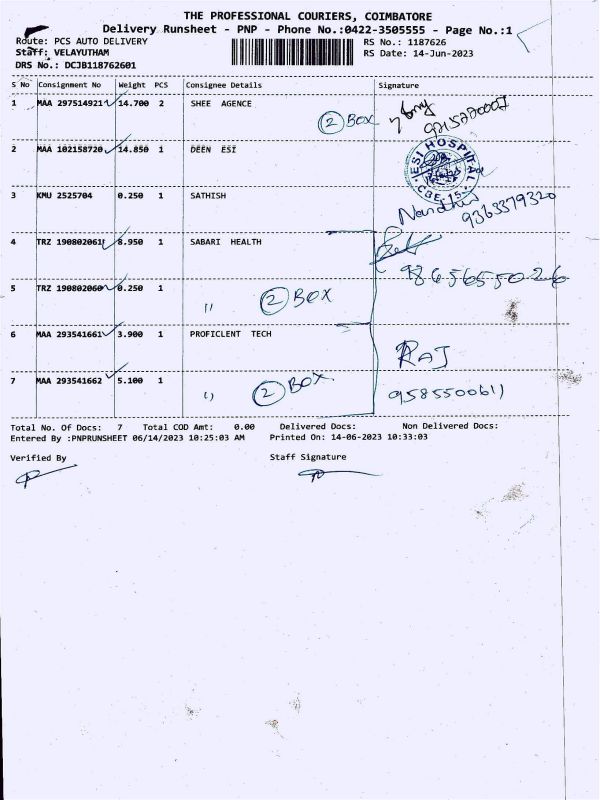 THE PROFESSIONAL COURIERS, COIMBATORE
Delivery Runsheet - PNP - Phone No.:0422-3505555 - Page No.:1
Route: PCS AUTO DELIVERY RS No.: 1187626
Staff: VELAYUTHAM RS Date: 14-Jun-2023
DRS No.: DCJB118762601
S No Consignment No Weight PCS Consignee Details Signature
1 MAA 297514921 14.700 2 SHEE AGENCE
2 BOX
2 MAA 102158720 14.850 1 DEEN ESI
ESI HOSPITAL
CBE-15
3 KMU 2525704 0.250 1 SATHISH
9363379320
4 TRZ 190802061 8.950 1 SABARI HEALTH
9865655026
5 TRZ 190802060 0.250 1
" 2 BOX
6 MAA 293541661 3.900 1 PROFICLENT TECH
RAJ
7 MAA 293541662 5.100 1
" 2 BOX 9585500611
Total No. Of Docs: 7 Total COD Amt: 0.00 Delivered Docs: Non Delivered Docs:
Entered By :PNPRUNSHEET 06/14/2023 10:25:03 AM Printed On: 14-06-2023 10:33:03
Verified By Staff Signature